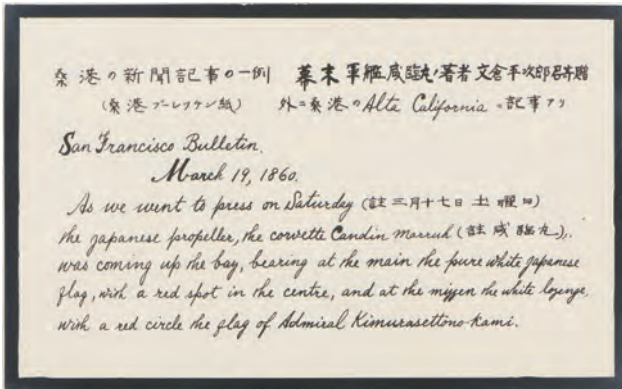 桑港の新聞記事の一例　幕末軍艦咸臨丸ノ著者文倉平次郎君寄贈
(桑港ブーレツテン紙)　外ニ桑港のAlta Californiaニ記事アリ
San Francisco Bulletin.
March 19, 1860.
As we went to press on Saturday (註 三月十七日 土曜日)
the Japanese propeller, the corvette Candin marruh (註 咸臨丸),.
was coming up the bay, bearing at the main the pure white Japanese
flag, with a red spot in the centre, and at the mizzen the white lozenge,
with a red circle the flag of Admiral Kimurasettono-kami.